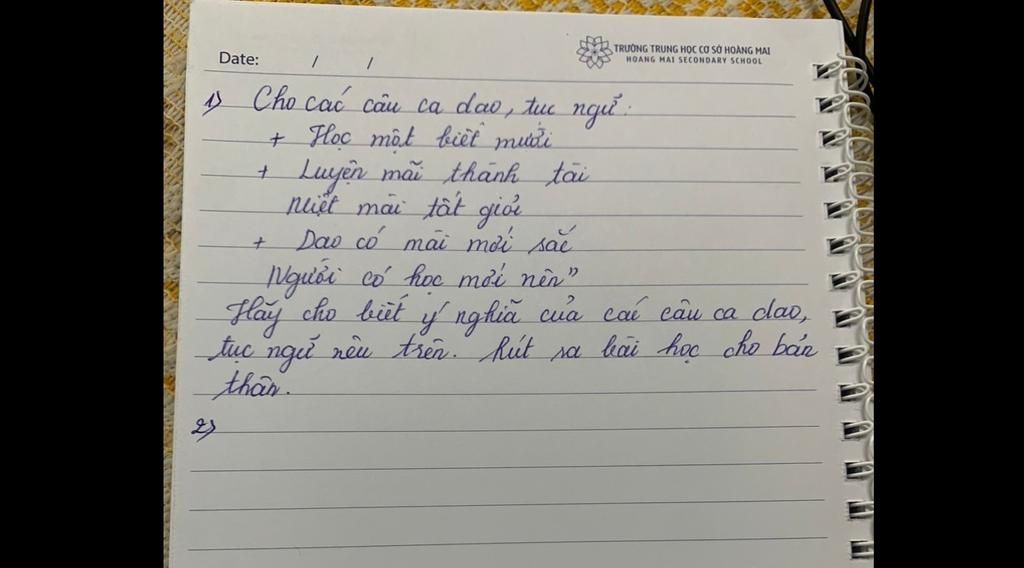 TRƯỜNG TRUNG HỌC CƠ SỞ HOÀNG MAI
HOANG MAI SECONDARY SCHOOL
Date: / /
1) Cho các câu ca dao, tục ngữ:
+ Học một biết mười
+ Luyện mãi thành tài
Miệt mài tất giỏi
+ Dao có mài mới sắc
Người có học mới nên"
Hãy cho biết ý nghĩa của các câu ca dao,
tục ngữ nêu trên. Rút ra bài học cho bản
thân.
2)